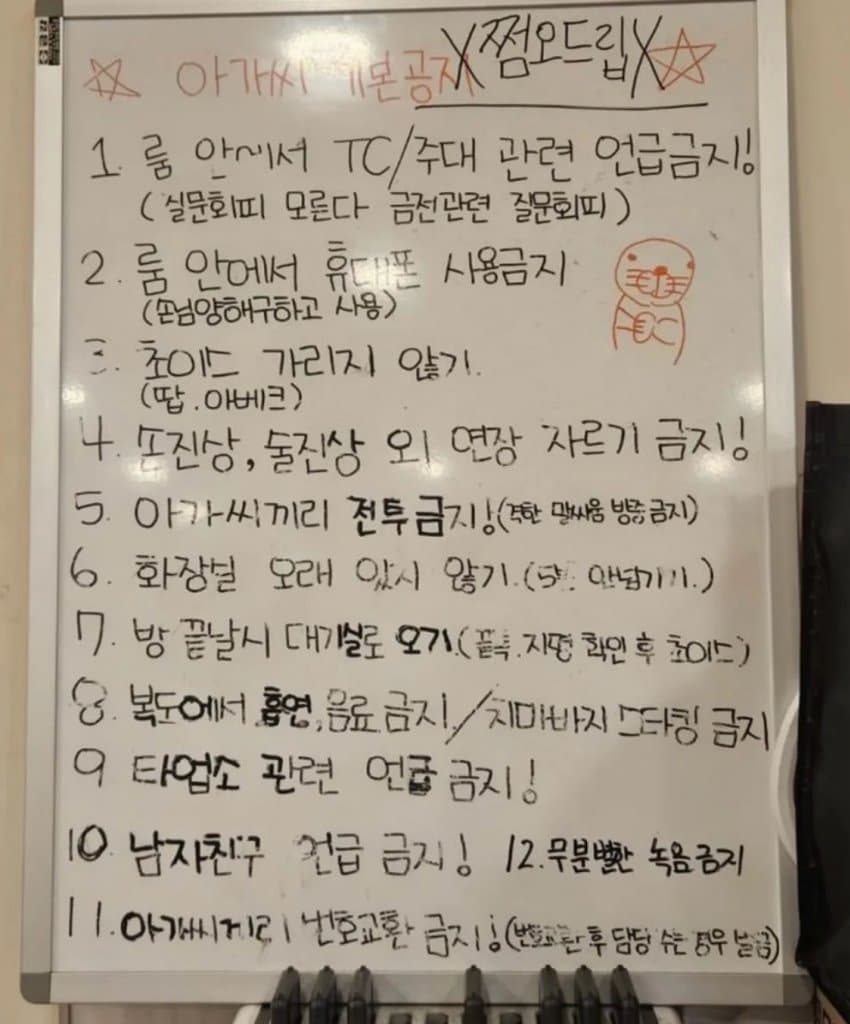 X쩜오드립X
아가씨 기본공지
1. 룸 안에서 TC/주대 관련 언급금지!
(질문회피 모른다 금전관련 질문회피)
2. 룸 안에서 휴대폰 사용금지
(손님양해구하고 사용)
3. 초이스 가리지 않기.
(땁.아베크)
4. 손진상, 술진상 외 연장 자르기 금지!
5. 아가씨끼리 전투금지!(격한 말싸움 방증금지)
6. 화장실 오래 있지 않기.(5분 안넘기기.)
7. 방 끝날시 대기실로 오기.(끝톡.지명 확인 후 초이스)
8. 복도에서 흡연,음료금지/치마바지 스타킹 금지
9 타업소 관련 언급 금지!
10. 남자친구 언급 금지! 12.무분별한 녹음금지
11.아가씨끼리 번호교환 금지!(번호교환 후 담당 수는 경우 벌금)